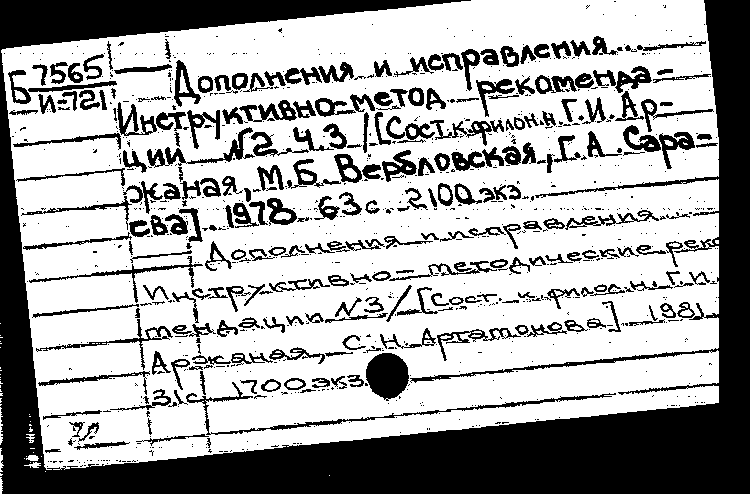 Б 7565
И-721
Дополнения и исправления...
Инструктивно-метод рекоменда-
ции №2 Ч.3 /[Сост.к.филон.н Г.И.Ар-
жаная, М.Б. Вербловская, Г.А.Сара-
ева]. 1978 63с. 2100экз
Дополнения и исправления
Инструктивно-методические реко
мендации №3/[Сост. к.филол.н. Г.И.
Аржаная, С.Н.Артамонова] 1981
31с 1700экз